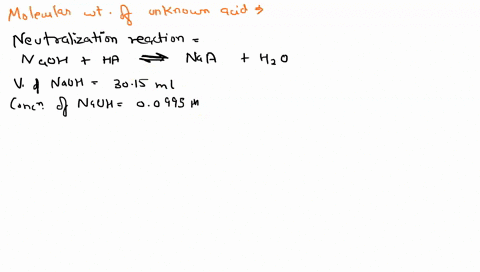 Molecular wt. of unknown acid ⇒
Neutralization reaction =
NaOH + HA ⇌ NaA + H2O
V. of NaOH = 30.15 ml
Concn. of NaOH = 0.0995 M